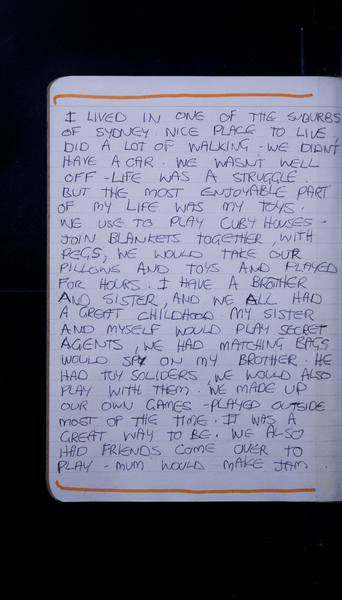 I LIVED IN ONE OF THE SUBURBS
OF SYDNEY. NICE PLACE TO LIVE.
DID A LOT OF WALKING - WE DIDN'T
HAVE A CAR. WE WASN'T WELL
OFF - LIFE WAS A STRUGGLE.
BUT THE MOST ENJOYABLE PART
OF MY LIFE WAS MY TOYS.
WE USE TO PLAY CUBY HOUSES -
JOIN BLANKETS TOGETHER, WITH
PEGS, WE WOULD TAKE OUR
PILLOWS AND TOYS AND PLAYED
FOR HOURS. I HAVE A BROTHER
AND SISTER, AND WE ALL HAD
A GREAT CHILDHOOD. MY SISTER
AND MYSELF WOULD PLAY SECRET
AGENTS, WE HAD MATCHING BAGS
WOULD SPY ON MY BROTHER. HE
HAD TOY SOLIDERS, WE WOULD ALSO
PLAY WITH THEM. WE MADE UP
OUR OWN GAMES - PLAYED OUTSIDE
MOST OF THE TIME. IT WAS A
GREAT WAY TO BE. WE ALSO
HAD FRIENDS COME OVER TO
PLAY - MUM WOULD MAKE JAM